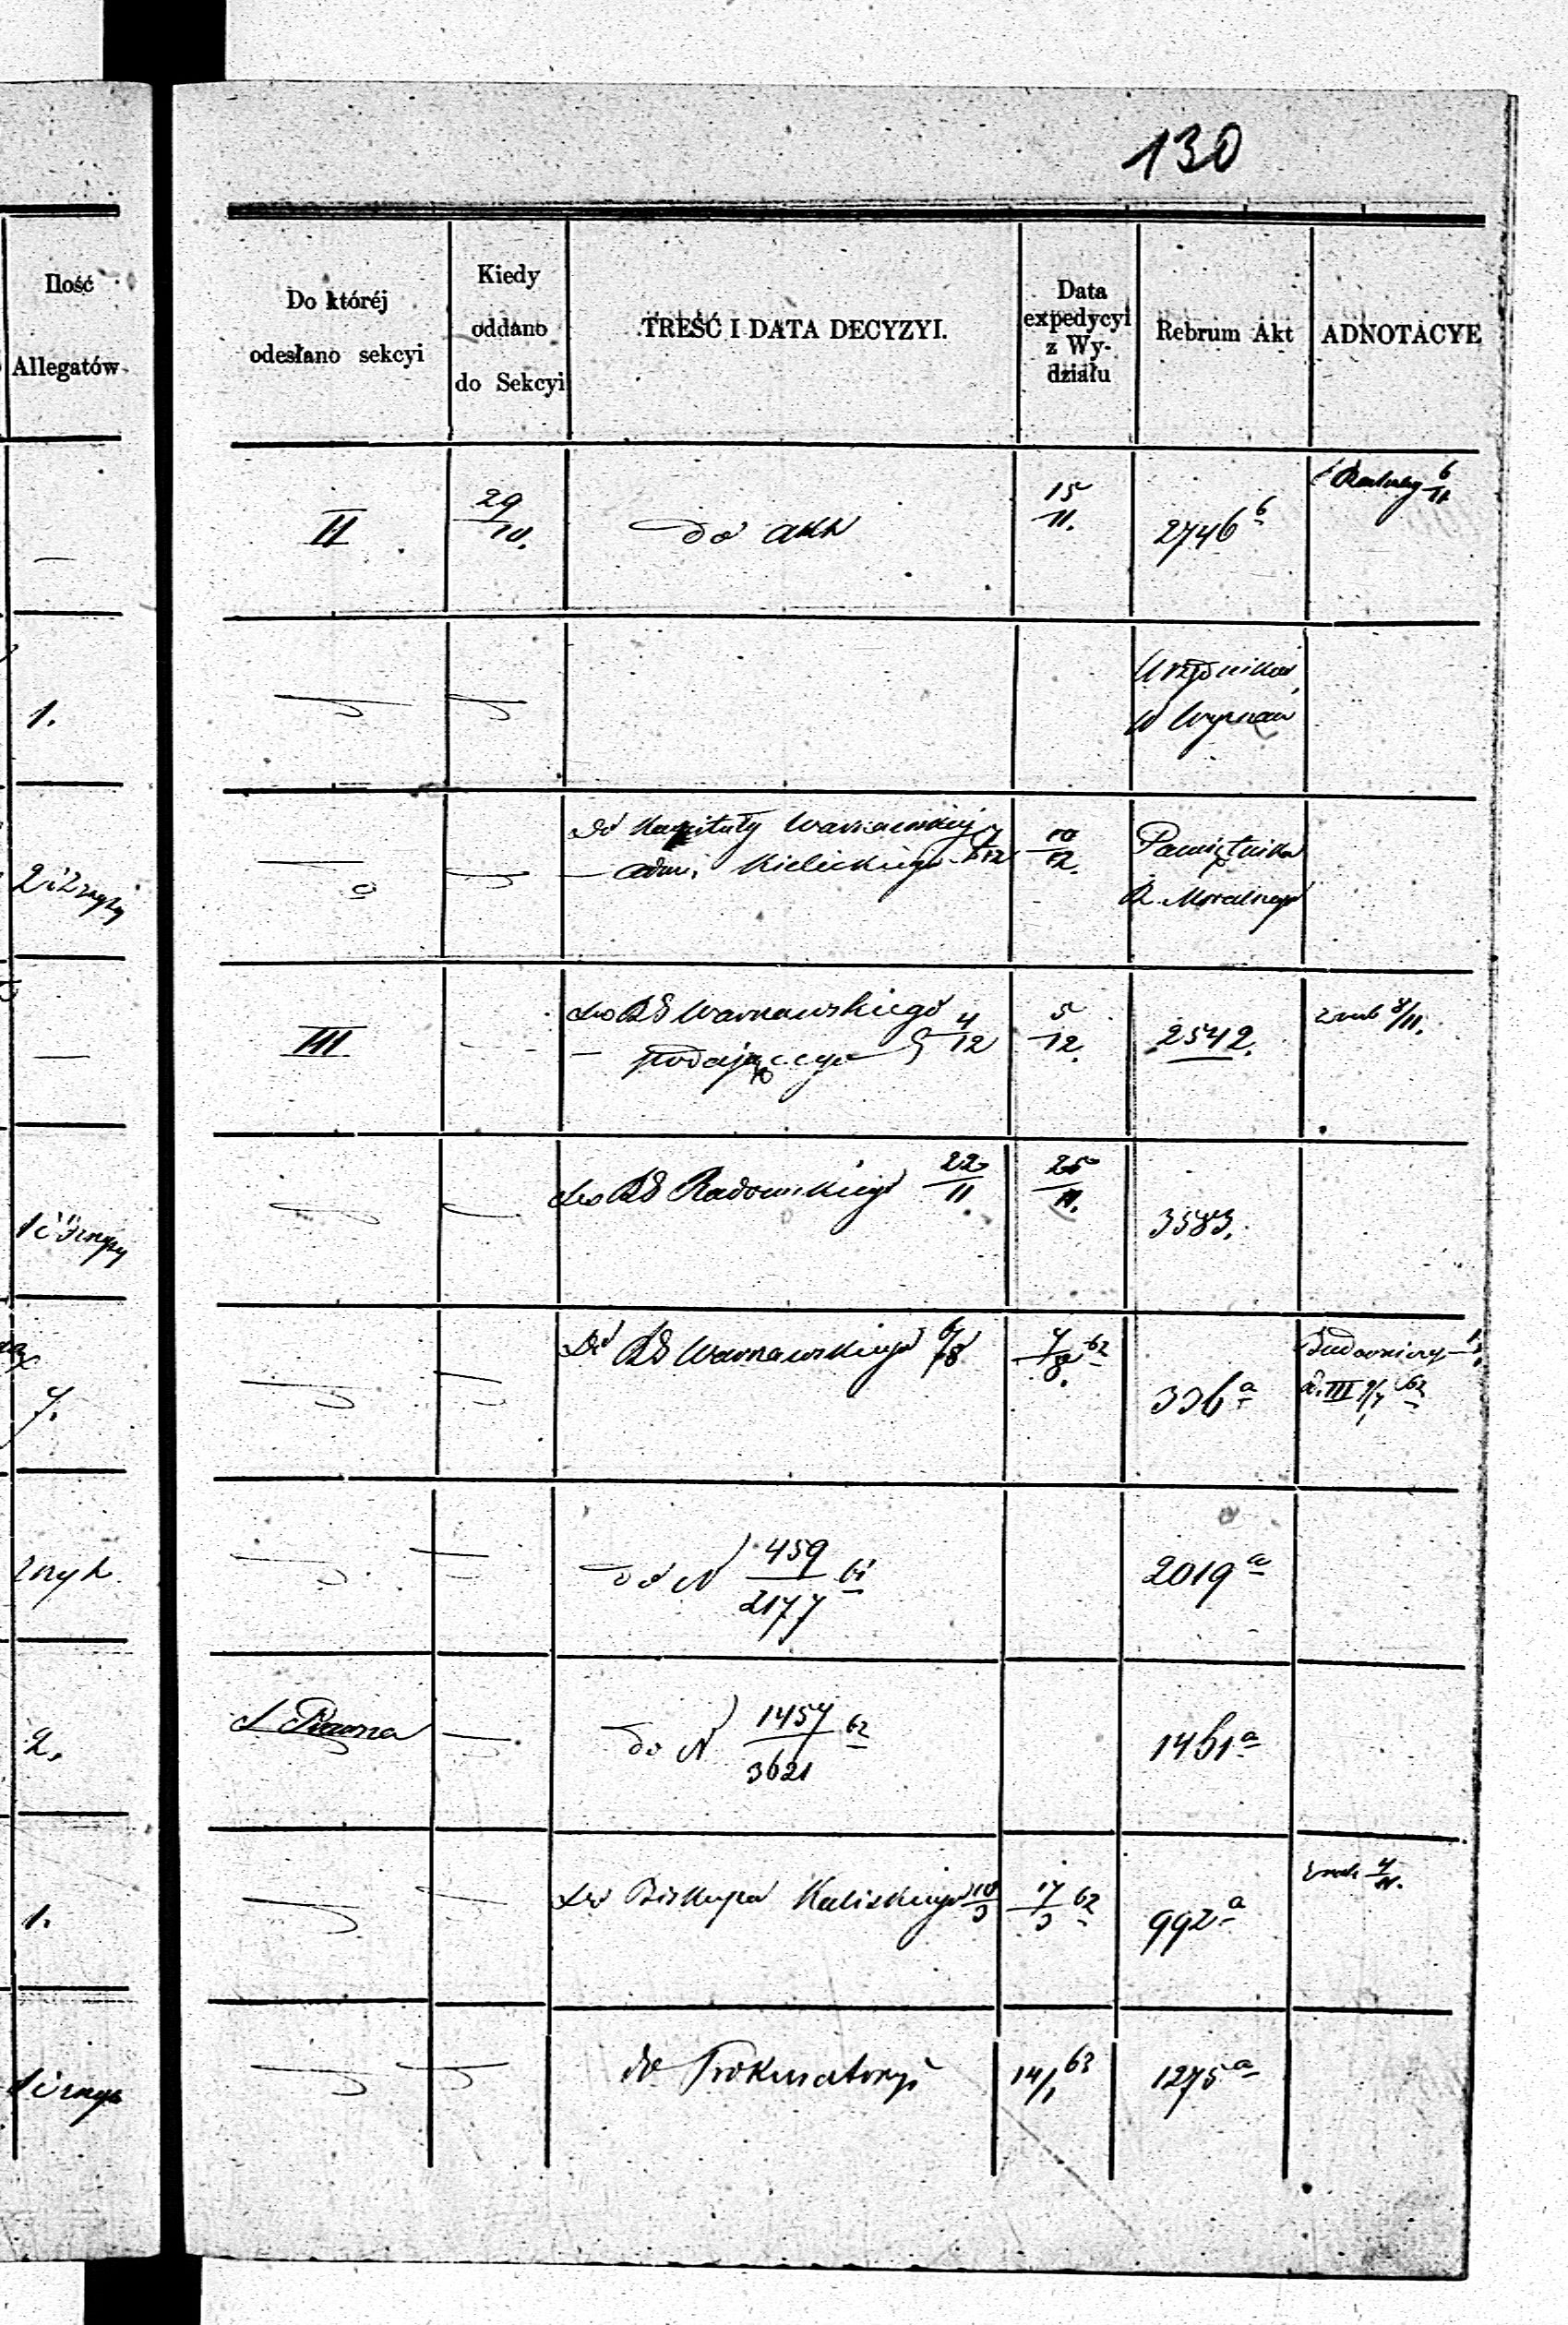 130
Ilość
Allegatów
Do któréj
odesłano sekcyi
Kiedy
oddano
do Sekcyi
TREŚĆ I DATA DECYZYI.
Data
expedycyi
z Wy-
działu
Rebrum Akt
ADNOTACYE
—
II
29/10.
do akt
15/11.
2746 b
6/11
1.
Urzędników
W
2 i
Do Kapituły Warszawskiej
— adm. Kieleckiego 7/12
10/12.
Pamiętnika
R. Moralnego
—
III
do RG Warszawskiego
— podającego 4/12
5/12.
2542.
8/11.
1 i
do RG Radomskiego 22/11
25/11.
3583.
7.
Do RG Warszawskiego 6/8
7/8 62
336 a
Budowniczy
III 9/7 62
do N 459/2177 61
2019 a
2.
S. Prawna
do N 1457/3621 62
1461 a
1.
do Biskupa Kaliskiego 10/3
17/3 62
992 a
4/11.
1 i
do Prokuratoryi
14/1 63
1275 a